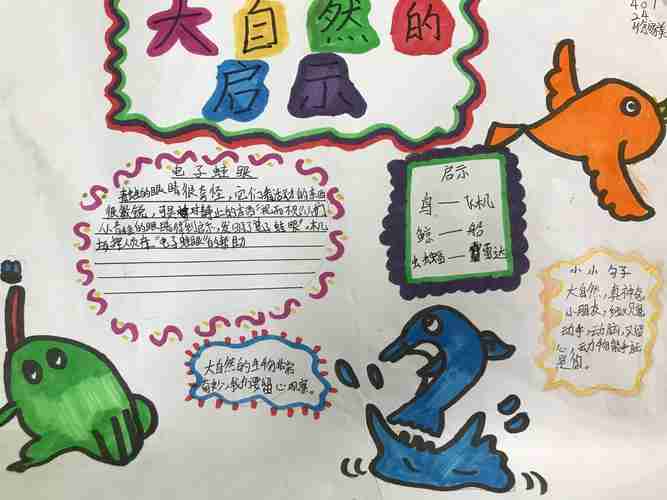 401
24
大自然的
启示
电子蛙眼
青蛙的眼睛很奇怪，它们看活动的东西
很敏锐，可是对静止的东西"视而不见"人们
从青蛙的眼睛得到启示，发明了电子蛙眼"，机
指挥人员有"电子蛙眼"的帮助
启示
鸟—飞机
鲸—船
蝙蝠—雷达
小小句子
大自然，真神奇
小朋友，
动手，动脑，又留
心，
是你。
大自然的
奇妙，我们要留心观察。